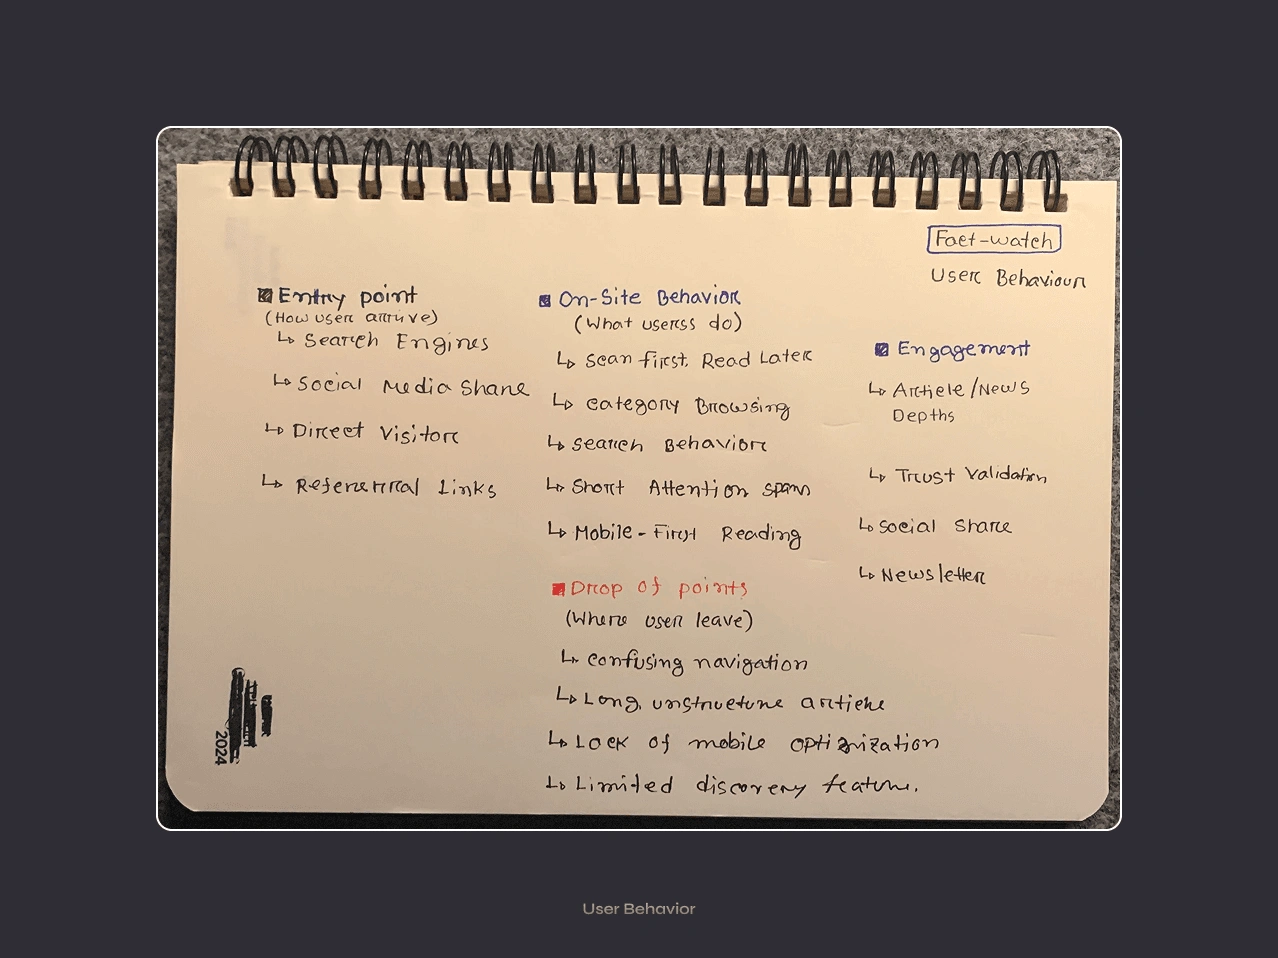 Fact-watch
User Behaviour
Entry point
(How user arrive)
↳ Search Engines
↳ Social Media Share
↳ Direct Visitor
↳ Refererral Links
On-Site Behavior
(What userss do)
↳ Scan first, Read Later
↳ Category Browsing
↳ Search Behavior
↳ Short Attention span
↳ Mobile-First Reading
Drop of points
(Where user leave)
↳ Confusing navigation
↳ Long, unstructure article
↳ Lack of mobile optimization
↳ Limited discovery feature.
Engagement
↳ Article/News
Depths
↳ Trust Validation
↳ Social Share
↳ Newsletter
2024
User Behavior